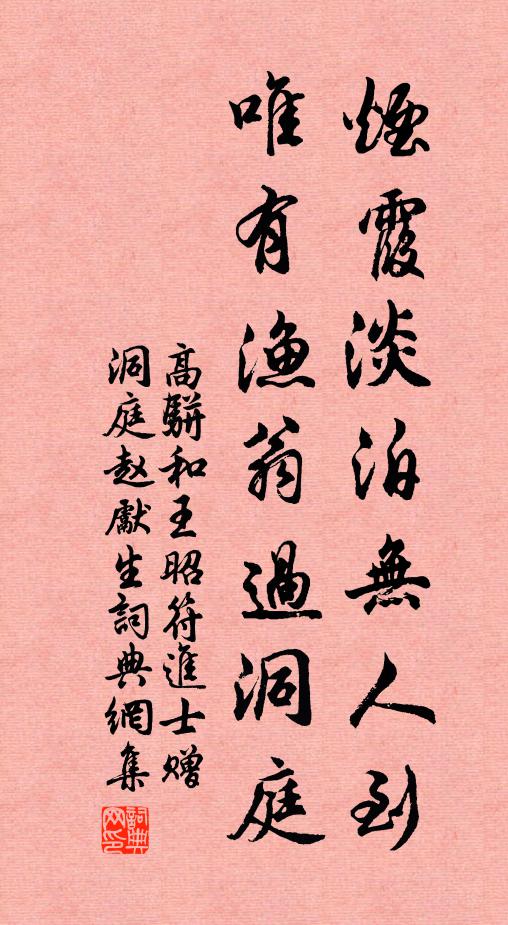 煙霞淡泊無人到
唯有漁翁過洞庭
高駢和王昭符進士赠
洞庭赵獻生詞典網集
詞典
网印